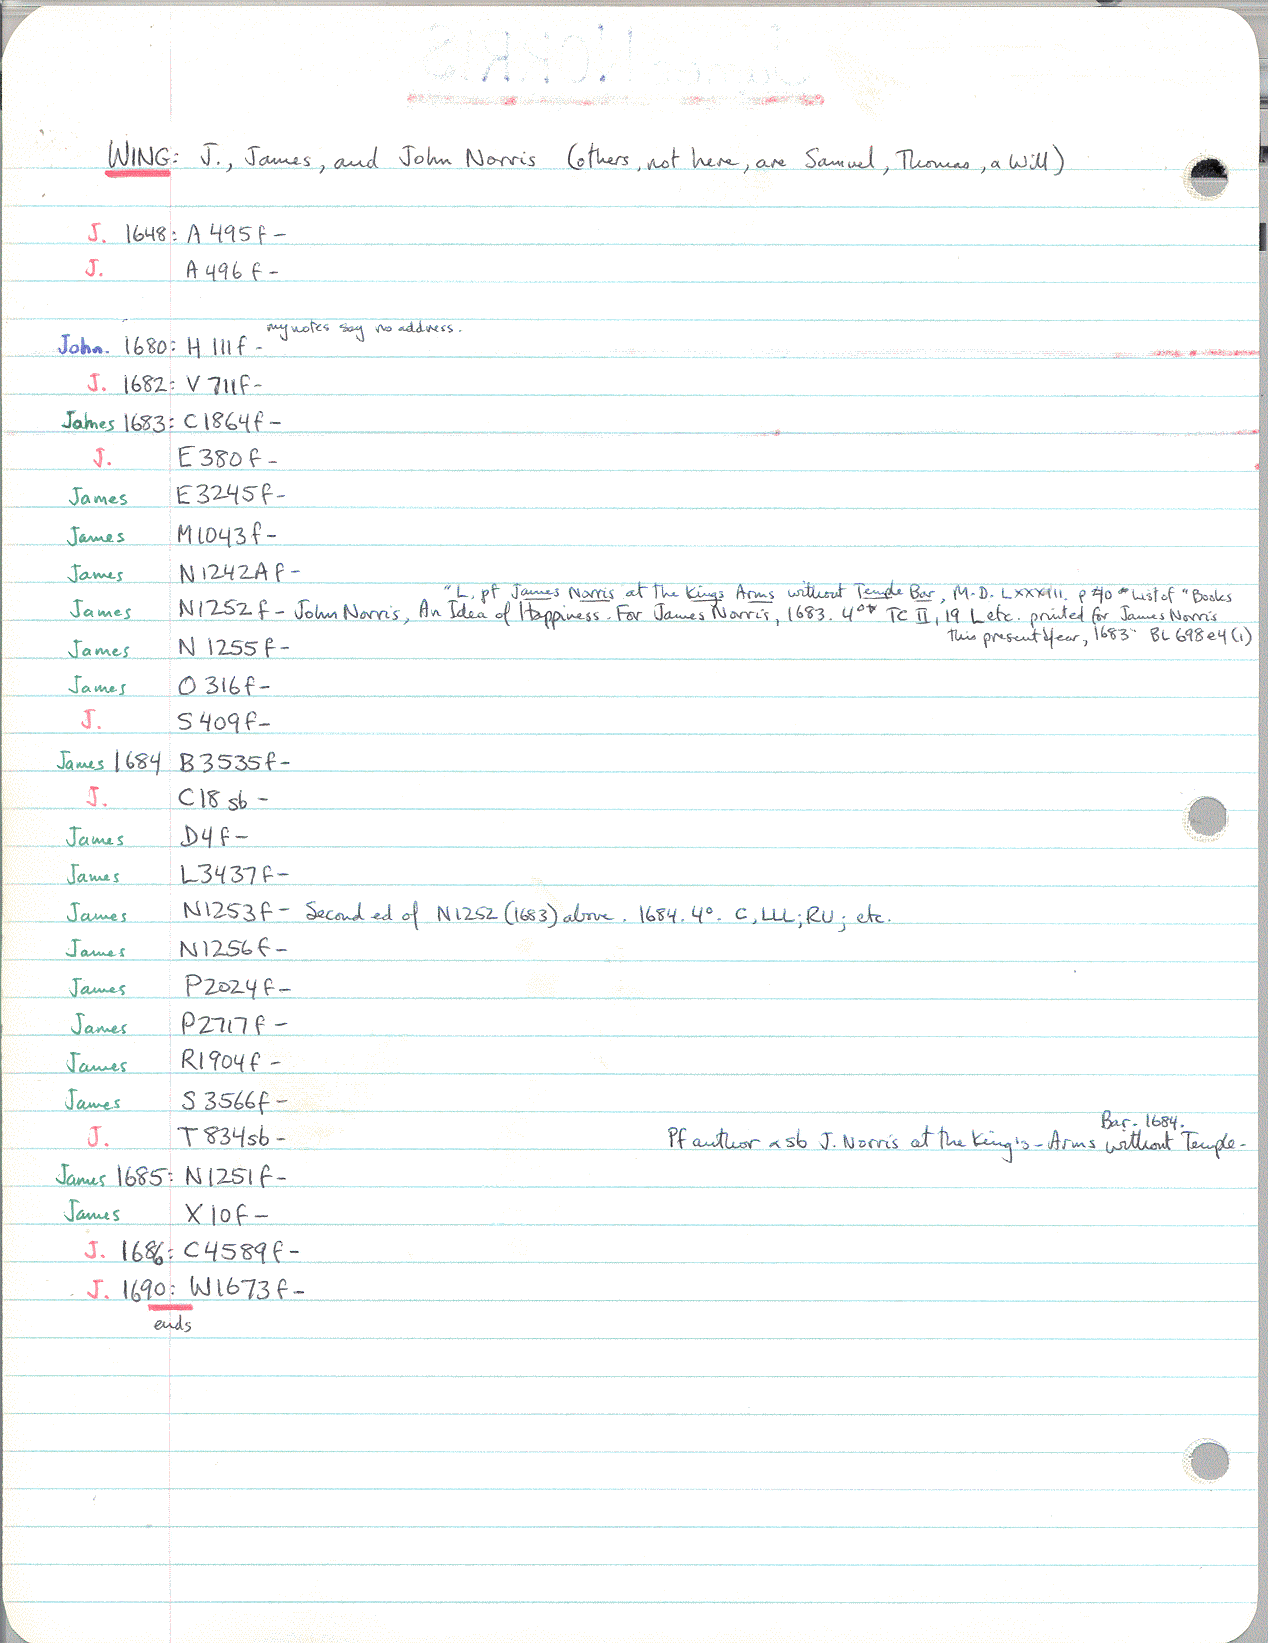 WING: J., James, and John Norris (others, not here, are Samuel, Thomas, a Will)
J. 1648: A 495 f -
J. A 496 f -
my notes say no address.
John. 1680: H 111 f -
J. 1682: V 711 f -
James 1683: C1864f -
J. E 380 f -
James E3245f -
James M1043f -
James N1242A f -
"L, pf James Norris at the Kings Arms without Temple Bar, M.D.LXXXIII. p 40 * List of "Books
James N1252 f - John Norris, An Idea of Happiness. For James Norris, 1683. 4° TC II, 19 L etc. printed for James Norris
this present year, 1683" BL 698 e 4 (1)
James N 1255 f -
James O 316 f -
J. S 409 f -
James 1684 B3535f -
J. C18 sb -
James D4 f -
James L3437f -
James N1253f - Second ed of N1252 (1683) above. 1684. 4°. C, LLL; RU; etc.
James N1256 f -
James P2024f -
James P2717 f -
James R1904f -
James S 3566f -
Bar. 1684.
J. T 834sb - Pf author & sb J. Norris at the King's-Arms without Temple-
James 1685: N1251 f -
James X 10 f -
J. 1686: C4589f -
J. 1690: W1673 f -
ends